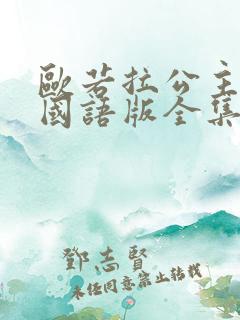 歐若拉公主
國語版全集
鄧志賢
未任同意禁止转载